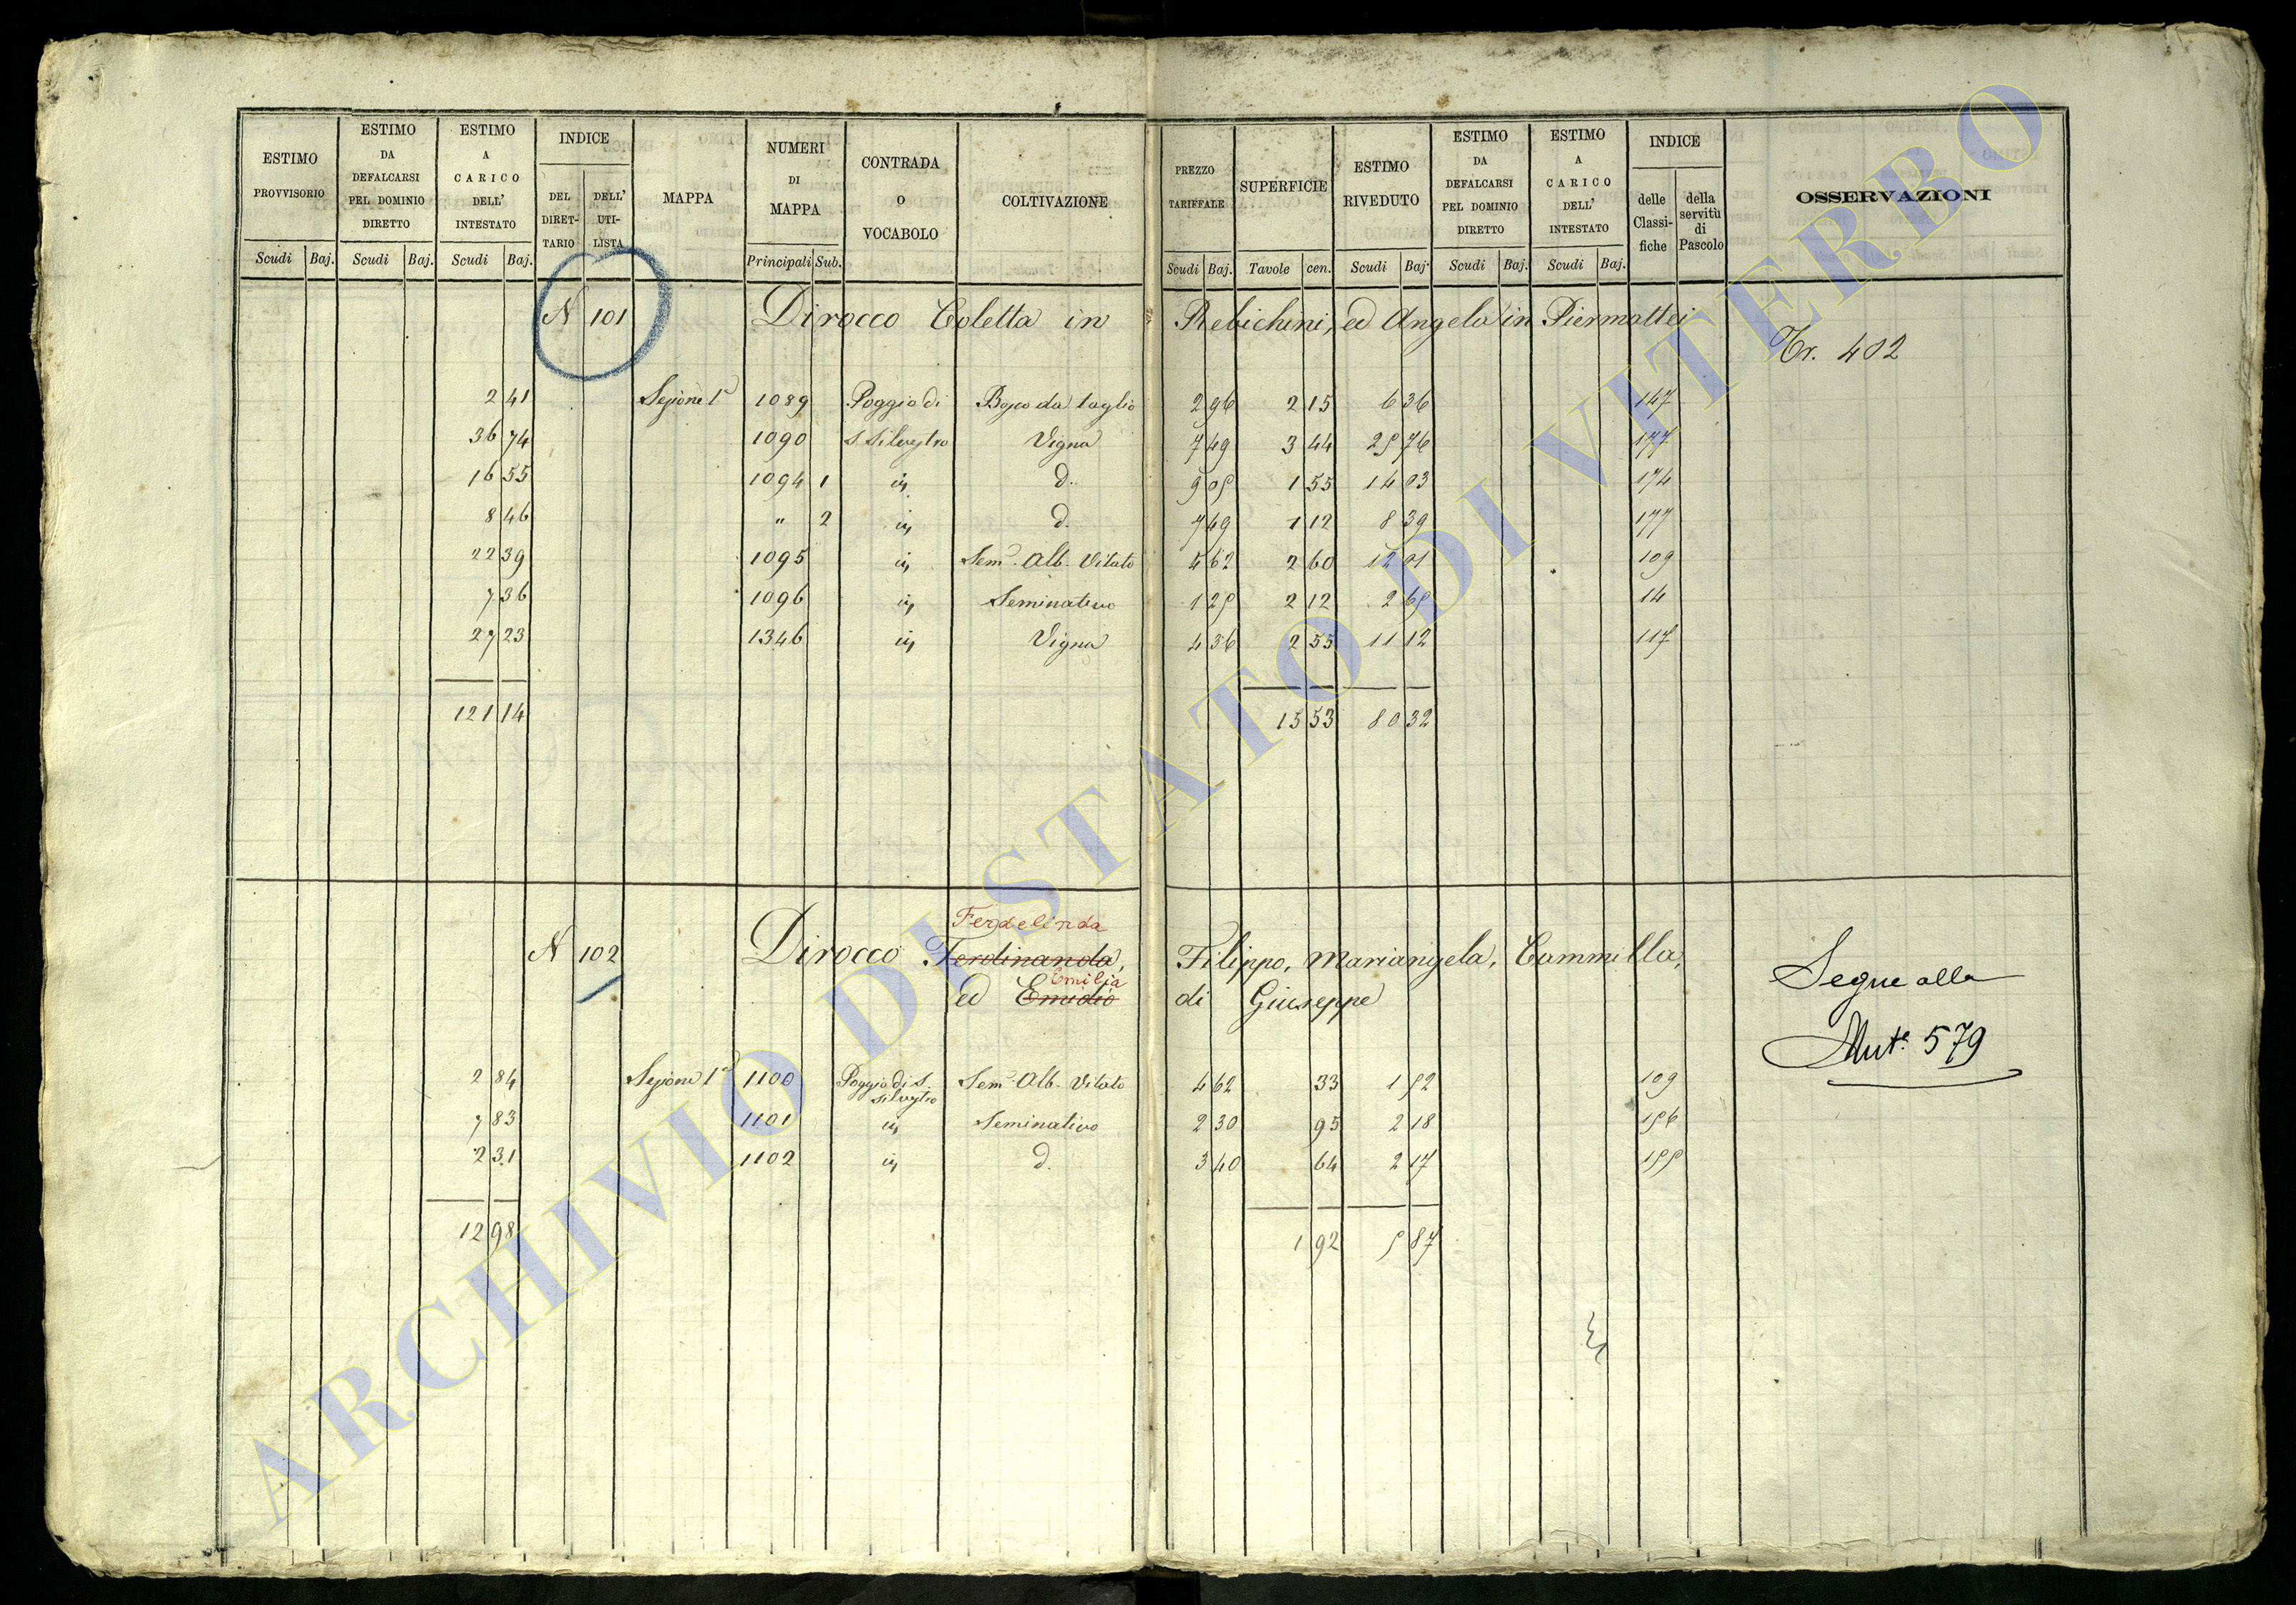 ESTIMO PROVVISORIO | ESTIMO DA DEFALCARSI PEL DOMINIO DIRETTO | ESTIMO A CARICO DELL' INTESTATO | INDICE DEL DIRET-TARIO | DELL' UTI-LISTA | MAPPA | NUMERI DI MAPPA | CONTRADA O VOCABOLO | COLTIVAZIONE | PREZZO TARIFFALE | SUPERFICIE | ESTIMO RIVEDUTO | ESTIMO DA DEFALCARSI PEL DOMINIO DIRETTO | ESTIMO A CARICO DELL' INTESTATO | INDICE delle Classi-fiche | della servitù di Pascolo | OSSERVAZIONI
Scudi | Baj. | Scudi | Baj. | Scudi | Baj. | Principali | Sub. | Scudi | Baj. | Tavole | cen. | Scudi | Baj. | Scudi | Baj. | Scudi | Baj.
N 101 Dirocco Coletta in Rebichini, ed Angela in Piermattei
Tr. 402
2 41 Sezione 1ª 1089 Poggio di Bosco da taglio 2 96 2 15 6 36 147
36 74 1090 S. Silvestro Vigna 7 49 3 44 25 76 177
16 55 1094 1 in d. 9 05 1 55 14 03 174
8 46 " 2 in d. 7 49 1 12 8 39 177
22 39 1095 in Semo Alb. Vitato 4 62 2 60 12 01 109
7 36 1096 in Seminativo 1 25 2 12 2 65 14
27 23 1346 in Vigna 4 36 2 55 11 12 117
121 14 15 53 80 32
Ferdelinda
N 102 Dirocco Ferdinanda, Filippo, Mariangela, Cammilla,
Emilia
ed Emidio di Giuseppe
Segue alla
Mut. 579
2 84 Sezione 1ª 1100 Poggio di S. Silvestro Semo Alb. Vitato 4 62 33 1 52 109
7 83 1101 in Seminativo 2 30 95 2 18 156
2 31 1102 in d. 3 40 64 2 17 155
12 98 1 92 5 87
ARCHIVIO DI STATO DI VITERBO